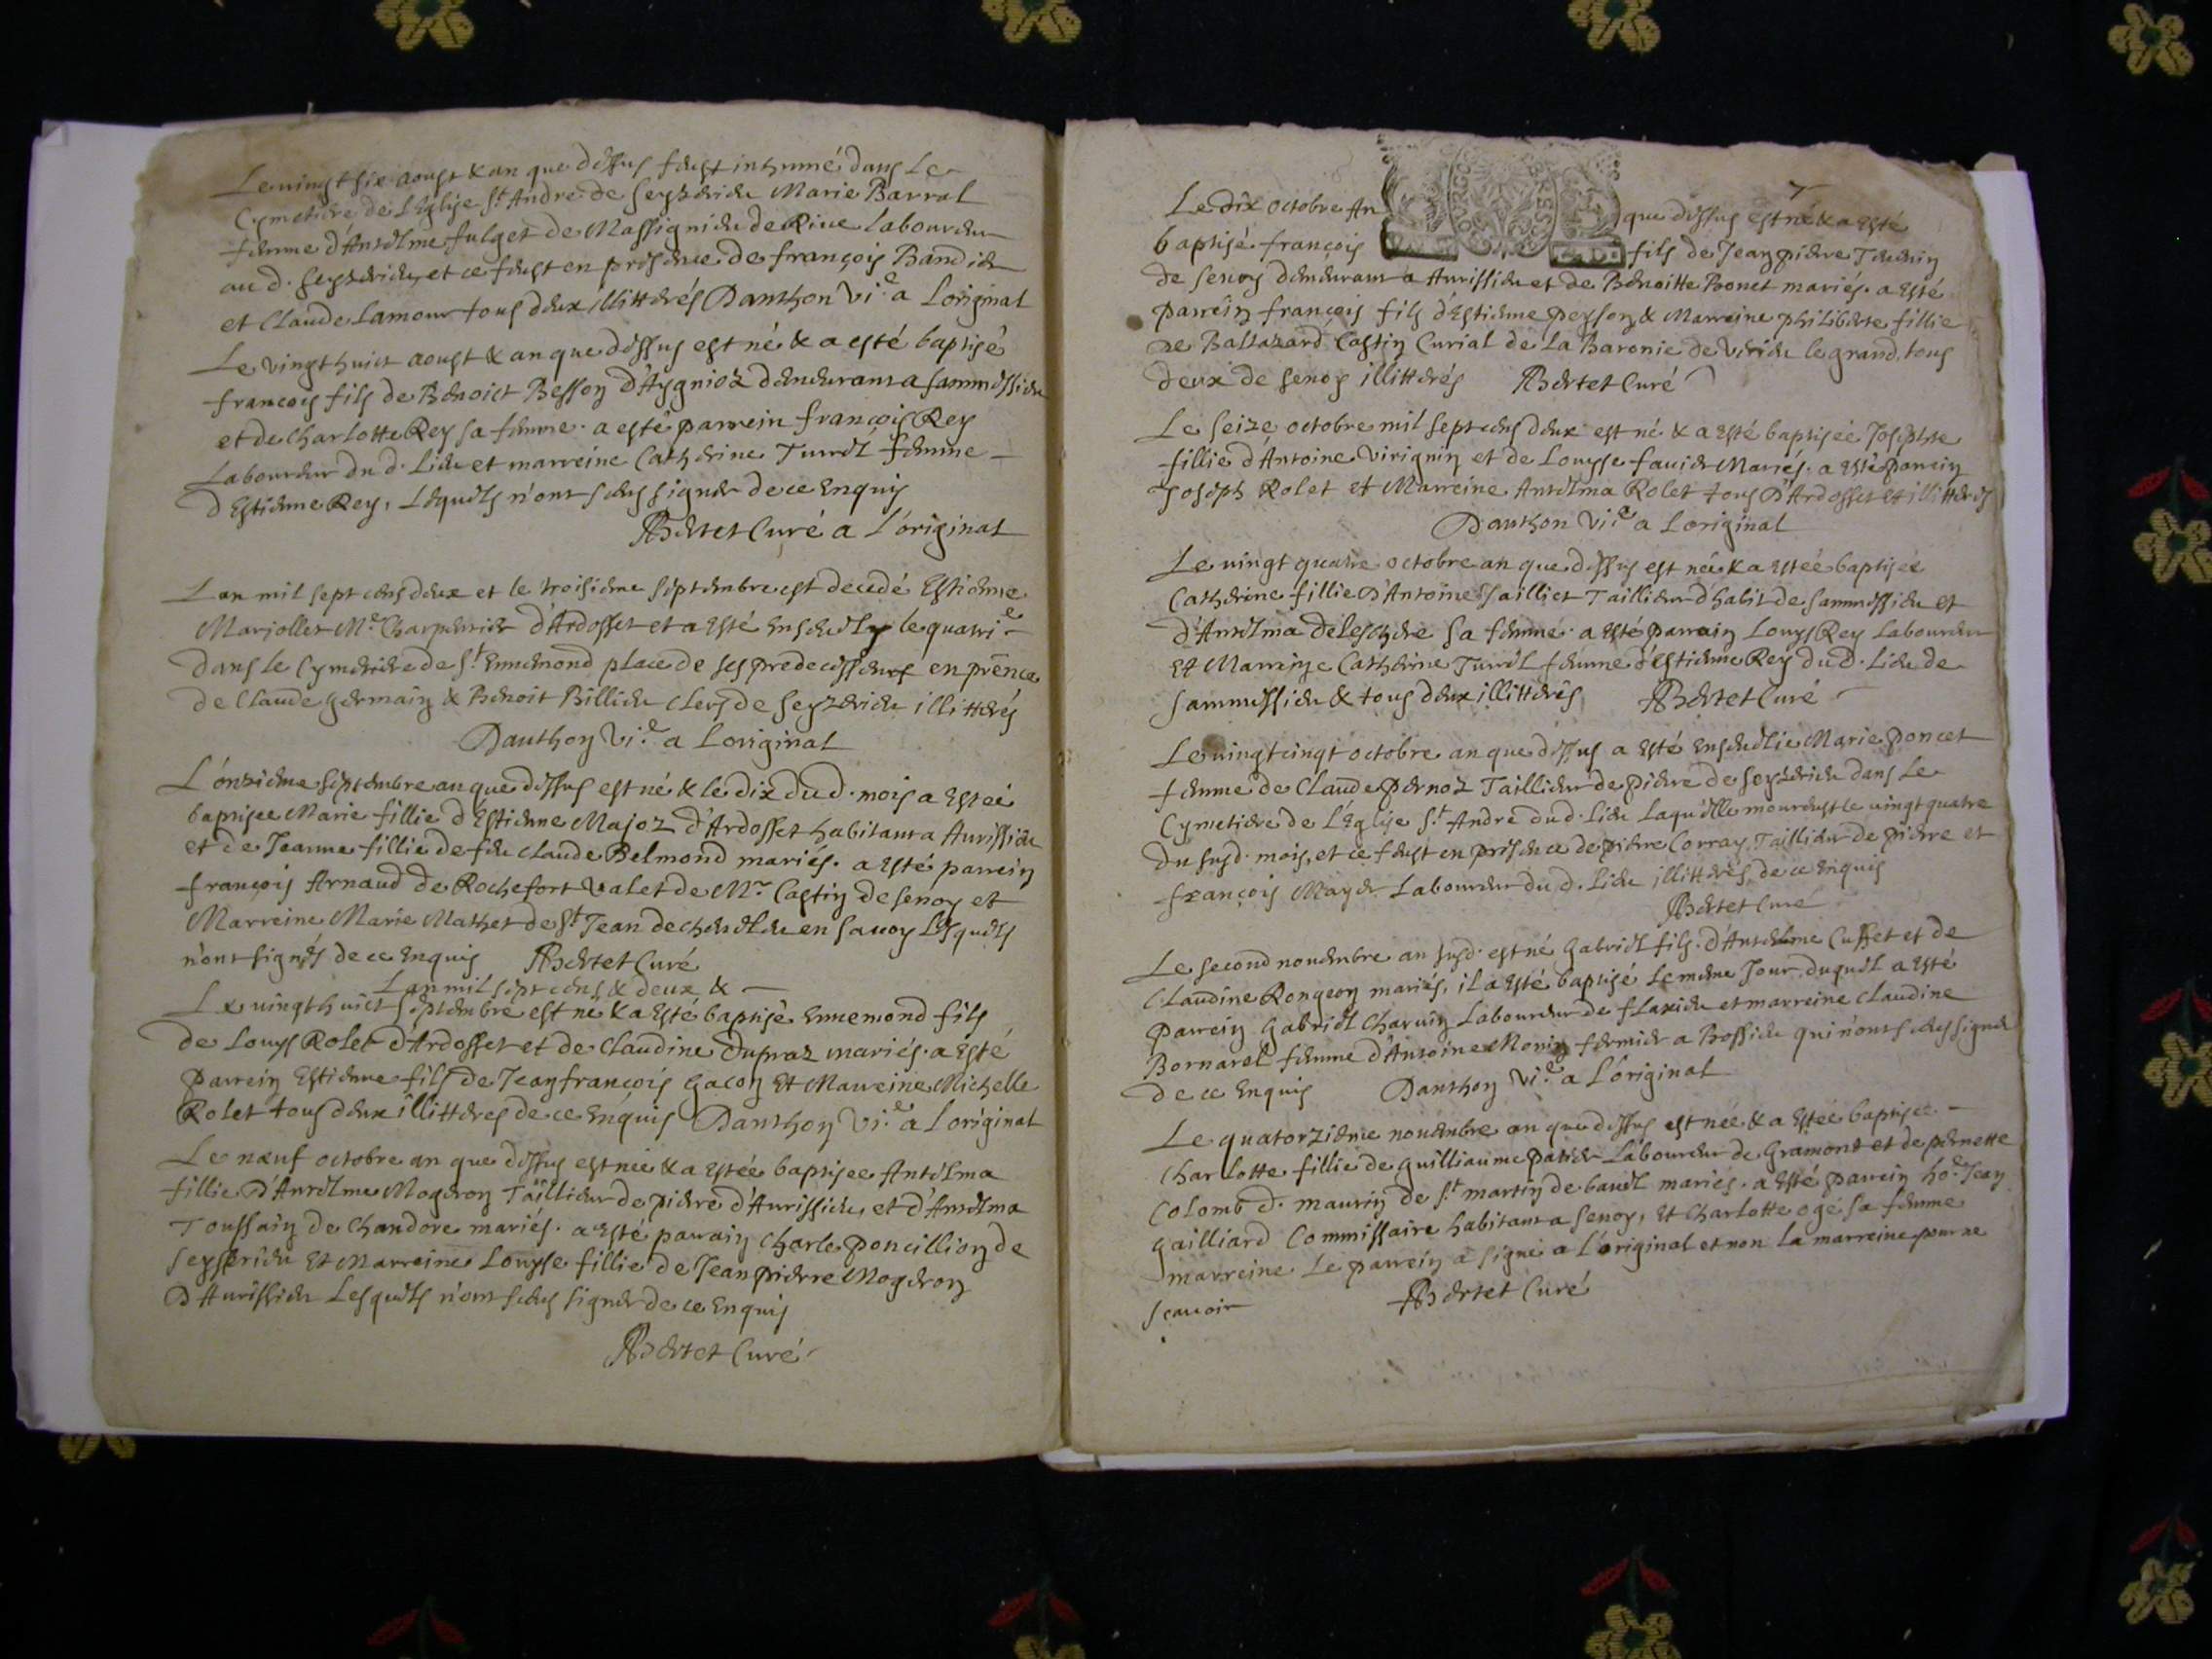 Le vingt six aoust & an que dessus feust inhumé dans le
Cymetiere de L'Eglise St André de Seyzerieu Marie Barral
femme d'Antelme fulget de Massignieu de Rive Laboureur
aud. Seyzerieu, et ce feust en presence de françois Bandier
et Claude Lamour tous deux illitterés Danthon vi.e a Loriginal
Le vingt huict aoust & an que dessus est né & a esté baptisé
françois fils de Benoict Besson d'Aygnioz demeurant a Sammessieu
et de Charlotte Rey sa femme. a esté parrein françois Rey
Laboureur dud. Lieu et marreine Catherine Turrel femme
d'Estienne Rey, Lequels n'ont sceus signer de ce Enquis
Bertet Curé a L'original
L'an mil sept cens deux et le troisieme septembre est decedé Estienne
Marjollet M.e Charpentier d'Ardosset et a esté Ensevely le quatri.e
dans le Cymetiere de St Ennemond place de ses predecesseurs en prénce
de Claude Germain & Benoit Billieu clers de Seyzerieu illitterés
Danthon Vi.e a Loriginal
L'onzieme septembre an que dessus est né & le dix dud. mois a Esteé
baptisee Marie fillie d'Estienne Majoz d'Ardosset habitant a Avrissieu
et de Jeanne fillie de feu Claude Belmond mariés. a esté parrein
françois Arnaud de Rochefort valet de Mr. Castin de Senoy et
Marreine Marie Mathet de St Jean de Chevelu en Savoy Lesquels
n'ont signés de ce Enquis Bertet Curé
Lan mil sept cens & deux &
Le vingt huict septembre est né & a Esté baptisé Ennemond fils
de Louys Rolet d'Ardosset et de Claudine Dupraz mariés. a Esté
parrein Estienne fils de Jean françois Gacon Et Marreine Michelle
Rolet tous deux illitteres de ce Enquis Danthon Vi.e a Loriginal
Le nœuf octobre an que dessus est née & a estée baptisee Antelma
fillie d'Antelme Mogeron Taillieur de pierre d'Avrissieu, et d'Antelma
Toussain de Chandore mariés. a esté parrain Charle poncillion de
Seyserieu Et Marreine Louyse fillie de Jean pierre Mogeron
D'Avrissieu Lesquels n'ont sceus signer de ce Enquis
Bertet Curé
7
Le dix octobre An que dessus est né & a Esté
baptisé françois fils de Jean pierre
de Senoy demeurant a Avrissieu et de Benoitte Bonet mariés. a Esté
parrein françois fils d'Estienne peysson & Marreine philiberte fillie
de Baltazard Castin Curial de La Baronie de Virieu le grand. tous
deux de Senoy illitterés Bertet Curé
Le seize octobre mil sept cens deux est né & a Esté baptisée Josephte
fillie d'Antoine Virignin et de Louyse favier Mariés. a Esté parrein
Joseph Rolet et Marreine Antelma Rolet tous d'Ardosset et illitterés
Danthon Vi.e a Loriginal
Le vingt quatre octobre an que dessus est née & a Esteé baptisée
Catherine fillie d'Antoine Saillict Taillieur d'habit de Sammessieu et
d'Antelma Deleschere sa femme. a esté parrain Louys Rey Laboureur
Et Marreine Catherine Turrel femme d'Estienne Rey dud. Lieu de
Sammessieu & tous deux illitterés Bertet Curé
Le vingt cinqt octobre an que dessus a Esté Ensevelie Marie poncet
femme de Claude pernoz Taillieur de pierre de Seyzerieu dans Le
Cymetiere de L'Eglise St André dud. Lieu Laquelle mourust le vingt quatre
du susd. mois, et ce feust en presence de pierre Corray Taillieur de pierre et
françois Mayer Laboureur dud. Lieu illitterés de ce Enquis
Bertet Curé
Le second novembre an susd. est né Gabriel fils d'Antelme Cusset et de
Claudine Rongeon mariés, il a Esté baptisé Le meme Jour, duquel a Esté
parrein Gabriel Charvin Laboureur de flaxieu et marreine Claudine
Bornarel femme d'Antoine Monin fermier a Brossieu qui n'ont sceus signer
de ce Enquis Danthon Vi.e a L'original
Le quatorzieme novembre an que dessus est née & a Esteé baptisee
Charlotte fillie de Guilliaume patier Laboureur de Gramont et de pernette
Colomb d. maurin de St martin de bavel mariés. a Esté parrein ho.e Jean
Gailliard Commissaire habitant a Senoy, Et Charlotte ogé sa femme
marreine Le parrein a signé a L'original et non La marreine pour ne
scavoir Bertet Curé